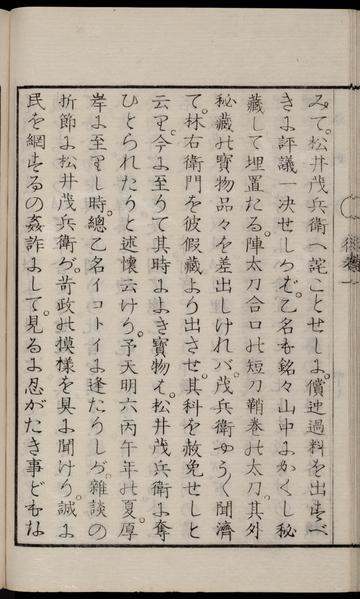 みて。松井茂兵衛へ詫ことせしよ。償迚過料を出すべ
きよ評議一決せしらバ。乙名も銘々山中よかくし秘
藏して埋置たる。陣太刀合口の短刀鞘巻の太刀。其外
秘藏の寳物品々を差出しけれバ。茂兵衛やうく聞濟
て。林右衛門を彼假藏より出させ。其科を赦免せしと
云り。今よ至りて其時よよき寳物も。松井茂兵衛よ奪
ひとられたりと述懐云けり。予天明六丙午年の夏。厚
岸よ至りし時。總乙名イコトイよ逢たりしが。雜談の
折節よ松井茂兵衛が。苛政の摸様を具よ聞けり。誠よ
民を網するの姦詐よして。見るよ忍がたき事どもな